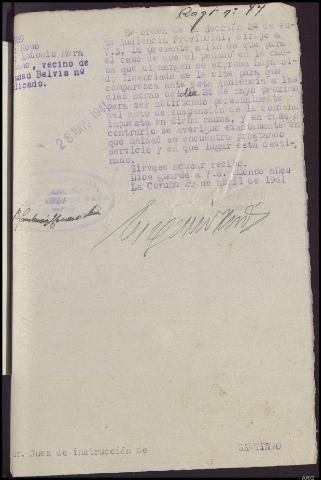 Robo
Antonio Mera
, vecino de
udad Belvis nº
licado.
De orden de la Sección 2ª de es-
ta Audiencia Provincial, dirijo a
V.S. la presente a fin de que para
el caso de que el penado en la cau-
sa que al margen se expresa haya si-
do licenciado se le cita para que
comparezca ante esta Audiencia a las
diez horas del día 24 de mayo próximo
para ser notificado personalmente
del auto de suspensión de la condena
impuesta en dicha causa, y en caso
contrario se averigue exactamente en
que unidad se encuentra prestando
servicio y en que lugar está desti-
nado.
Sirvase acusar recibo.
Dios guarde a V.S. muchos años
La Coruña 29 de abril de 1941
28 MAYO 1941
r. Juez de instrucción de
SANTIAGO